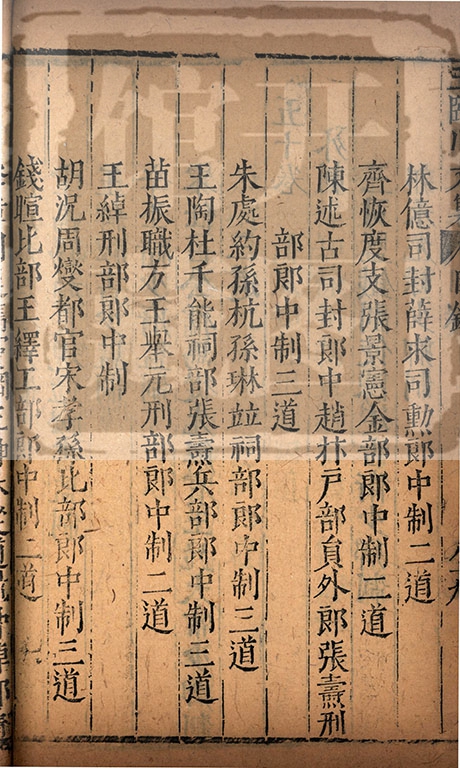 林億司封薛求司勲郎中制二道
齊恢度支張景憲金部郎中制二道
陳述古司封郎中趙抃戸部貟外郎張燾刑
部郎中制三道
朱處約孫杭孫琳竝祠部郎中制三道
王陶杜千能祠部張燾兵部郎中制三道
苗振職方王舉元刑部郎中制二道
王綽刑部郎中制
胡況周燮都官宋孝孫比部郎中制三道
錢暄比部王繹工部郎中制二道